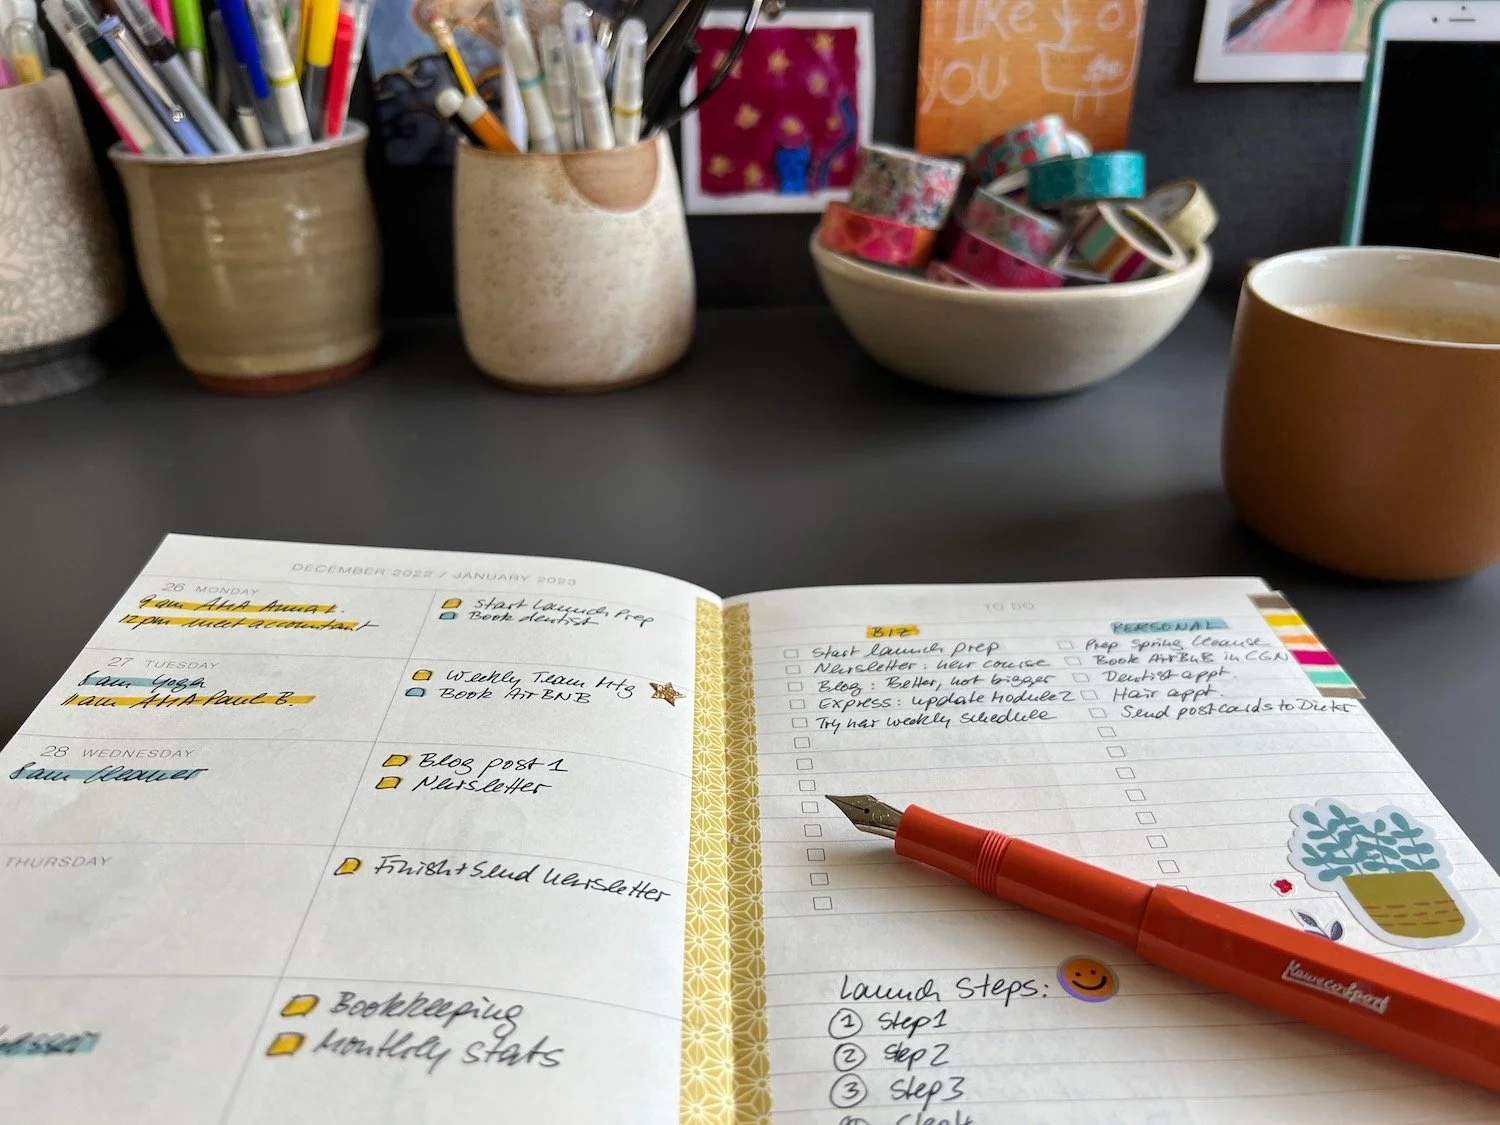 Like
YOU
the
DECEMBER 2022 / JANUARY 2023
26 MONDAY
9am AMA Anna L.
12pm meet accountant
Start Launch Prep
Book dentist
27 TUESDAY
8am Yoga
11am AMA Paul B.
Weekly Team Mtg
Book AirBNB
28 WEDNESDAY
8am Cleaner
Blog post 1
Newsletter
THURSDAY
Finish + Send Newsletter
Bookkeeping
Monthly stats
TO DO
BIZ
Start launch prep
Newsletter: new course
Blog: Better, not bigger
Express: update Module 2
Try new weekly schedule
PERSONAL
Prep Spring Cleanse
Book AirBnB in CGN
Dentist appt.
Hair appt.
Send postcards to Dieter
Launch Steps:
1 Step 1
2 Step 2
3 Step 3
KawecoSport